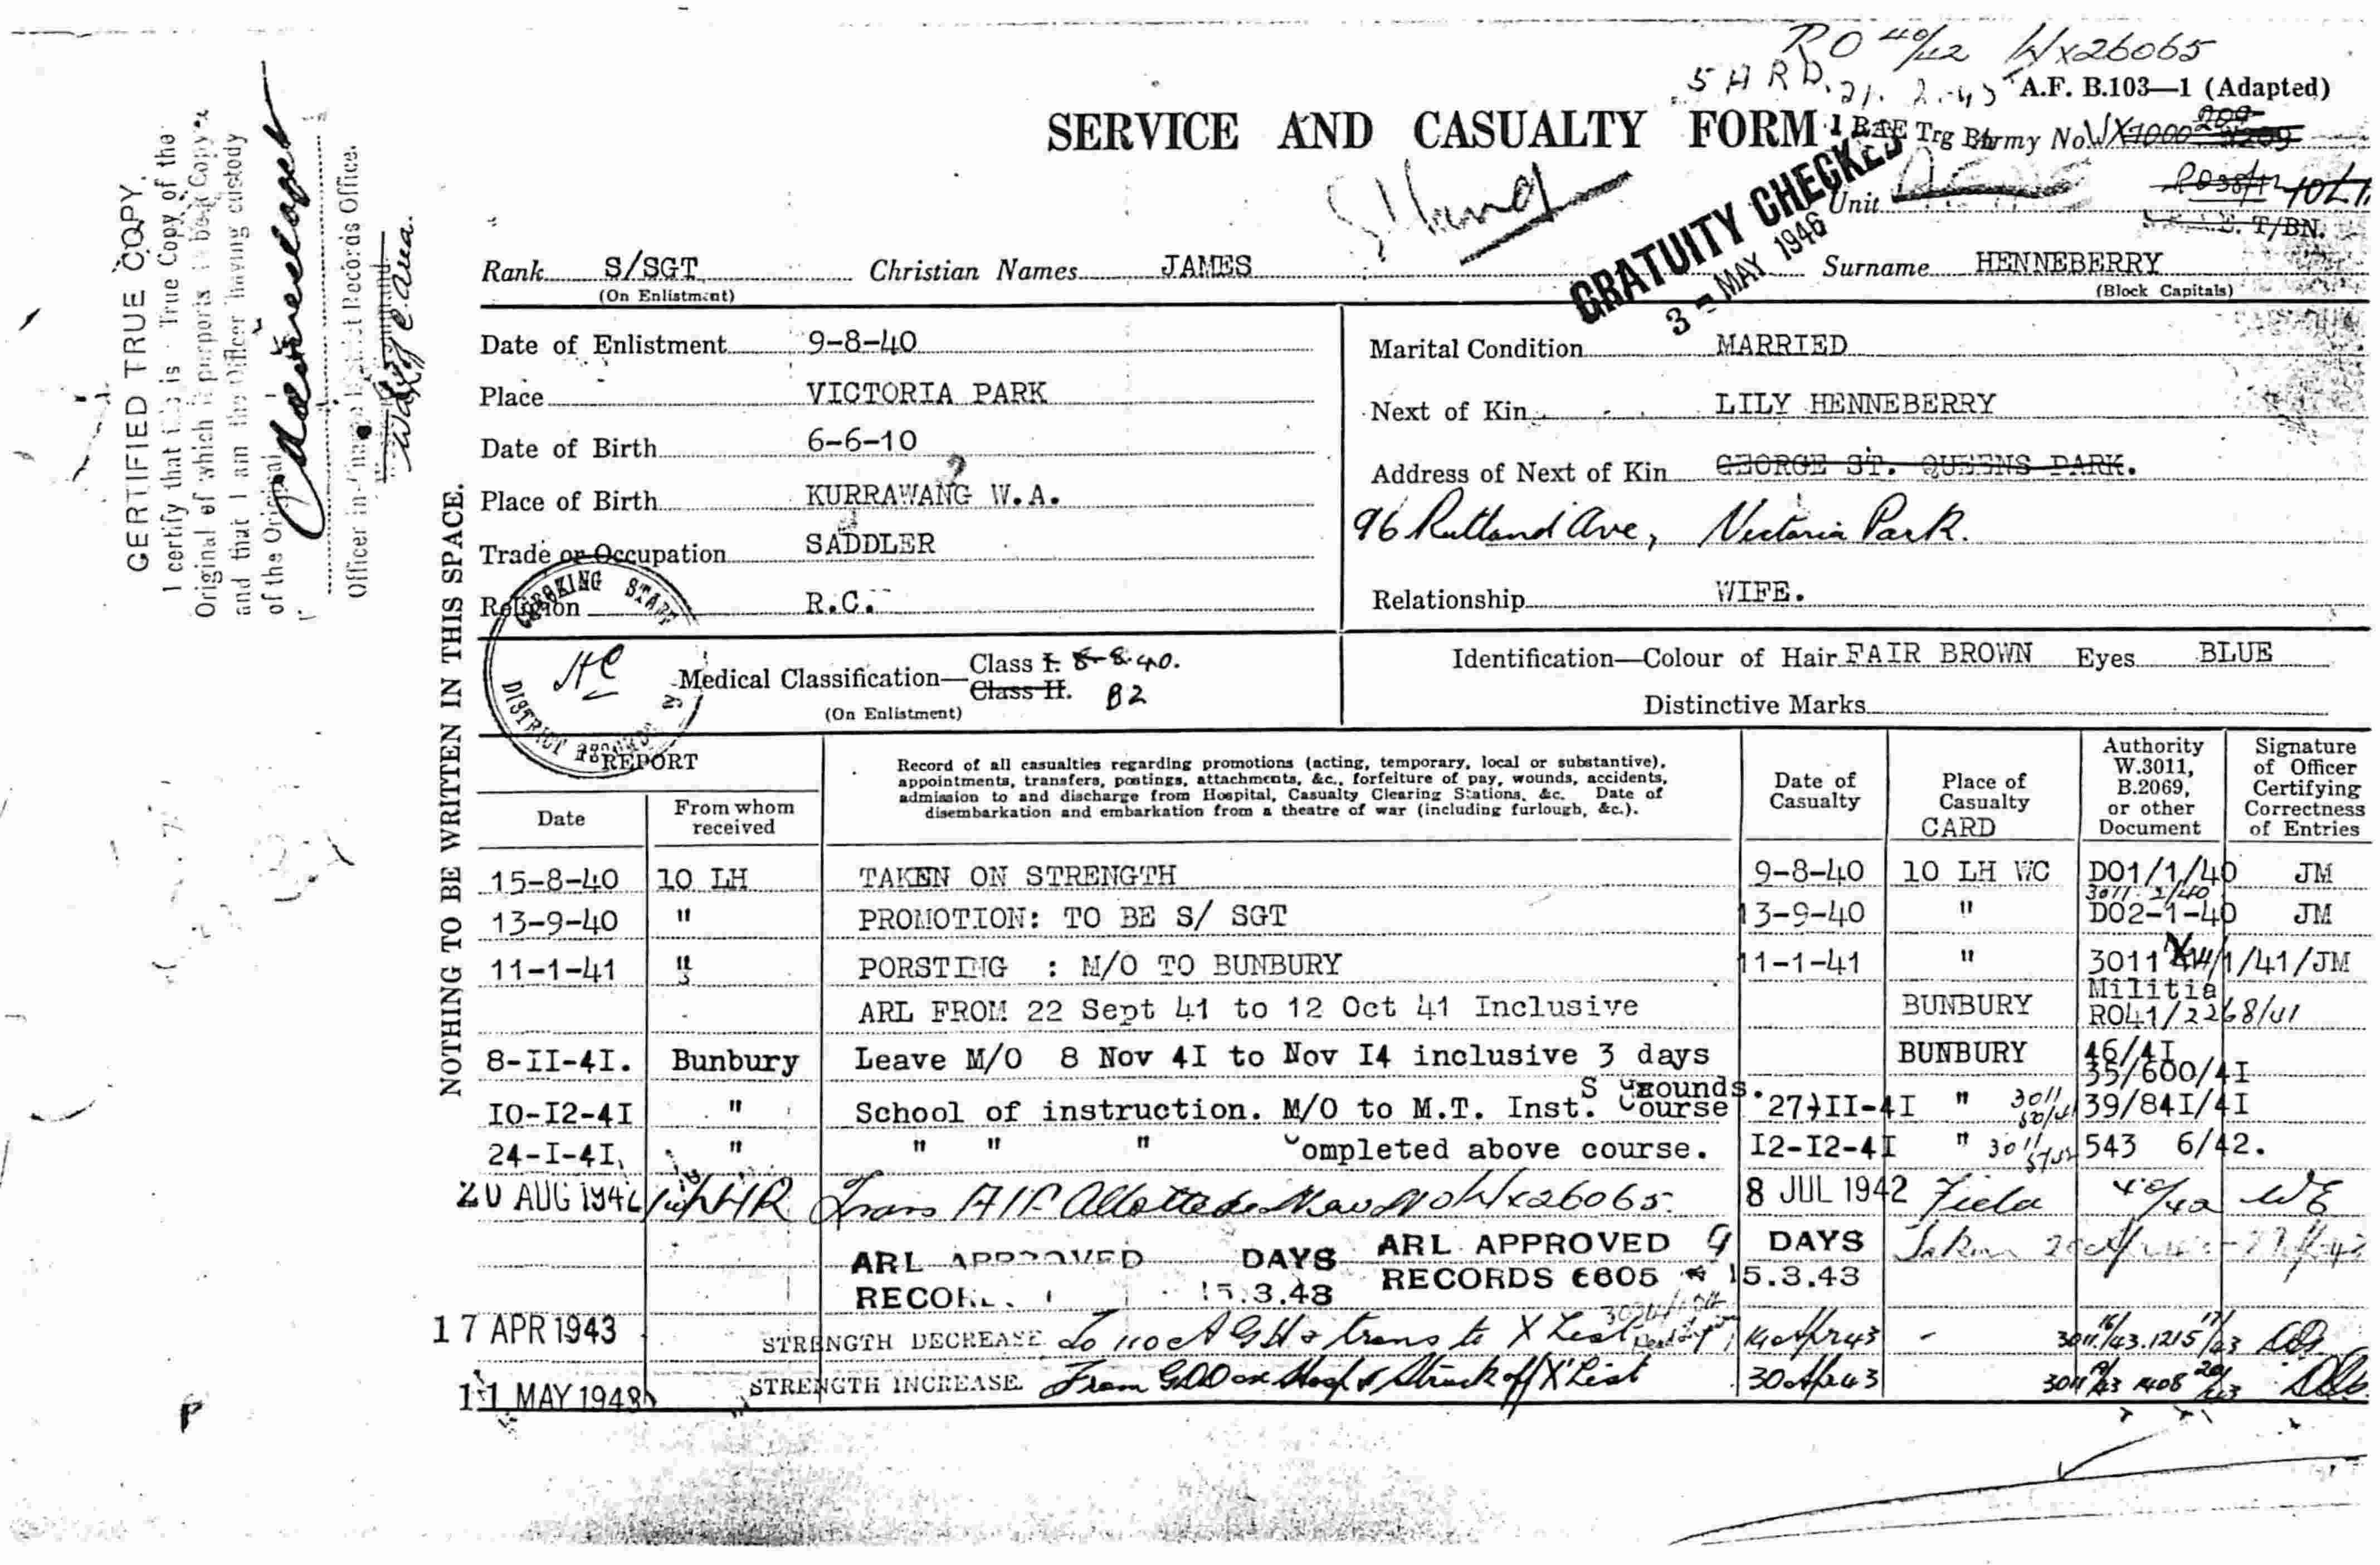 RO 40/42 WX26065
5 A R D. 21. 2. 43
A.F. B.103—1 (Adapted)
SERVICE AND CASUALTY FORM
1 RAE Trg B
Army No. WX1000 209
Unit
RO38/42 10 L
T/BN.
GRATUITY CHECKED
3 - MAY 1946
Rank S/SGT Christian Names JAMES Surname HENNEBERRY
(On Enlistment) (Block Capitals)
Date of Enlistment 9-8-40
Place VICTORIA PARK
Date of Birth 6-6-10
Place of Birth KURRAWANG W.A.
Trade or Occupation SADDLER
Religion R.C.
Marital Condition MARRIED
Next of Kin LILY HENNEBERRY
Address of Next of Kin GEORGE ST. QUEENS PARK.
96 Rutland Ave, Victoria Park.
Relationship WIFE.
Medical Classification— Class I. 8-8-40.
Class II. B2
(On Enlistment)
Identification—Colour of Hair FAIR BROWN Eyes BLUE
Distinctive Marks
CHECKING STAFF
HC
DISTRICT RECORDS
CERTIFIED TRUE COPY.
I certify that this is True Copy of the
Original of which it purports to be a Copy
and that I am the Officer having custody
of the Original
Officer in Records Office.
NOTHING TO BE WRITTEN IN THIS SPACE.
REPORT
Date
From whom received
Record of all casualties regarding promotions (acting, temporary, local or substantive),
appointments, transfers, postings, attachments, &c., forfeiture of pay, wounds, accidents,
admission to and discharge from Hospital, Casualty Clearing Stations, &c. Date of
disembarkation and embarkation from a theatre of war (including furlough, &c.).
Date of Casualty
Place of Casualty
CARD
Authority W.3011, B.2069, or other Document
Signature of Officer Certifying Correctness of Entries
15-8-40 10 LH TAKEN ON STRENGTH 9-8-40 10 LH WC DO1/1/40 JM
3011 2/40
13-9-40 " PROMOTION: TO BE S/ SGT 13-9-40 " DO2-1-40 JM
11-1-41 " PORSTING : M/O TO BUNBURY 11-1-41 " 3011 1/41/JM
ARL FROM 22 Sept 41 to 12 Oct 41 Inclusive BUNBURY Militia RO41/2268/41
8-II-4I. Bunbury Leave M/O 8 Nov 4I to Nov I4 inclusive 3 days BUNBURY 46/4I
35/600/4I
S grounds.
I0-I2-4I " School of instruction. M/O to M.T. Inst. Course 27-II-4I " 3011 50/41 39/84I/4I
24-I-4I, " " " " Completed above course. I2-I2-4I " 3011 543 6/42.
20 AUG 1942 Trans AIF Allotted WX26065. 8 JUL 1942 Field 40/42 WE
ARL APPROVED DAYS ARL APPROVED 9 DAYS Taken
15.3.43 RECORDS 6805 15.3.43
17 APR 1943 STRENGTH DECREASE To 110 AGH & trans to X List 14 Apr 43 - 3011 16/43.1215 17/43
11 MAY 1943 STRENGTH INCREASE From Hosp & Struck off 'X' List 30 Apr 43 3011 1408